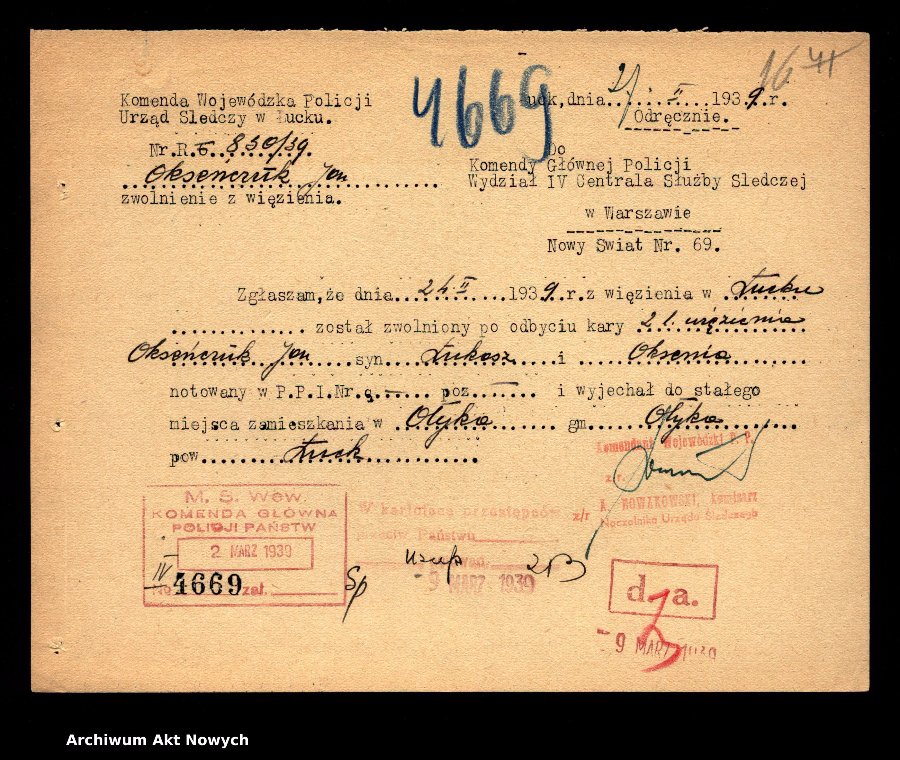 16
4669
Komenda Wojewódzka Policji
Urząd Sledczy w Łucku.
Łuck, dnia 2/ II 1939.r.
Odręcznie.
Nr.R. 850/39.
Oksenczuk Jan
zwolnienie z więzienia.
Do
Komendy Głównej Policji
Wydział IV Centrala Służby Sledczej
w Warszawie
Nowy Swiat Nr. 69.
Zgłaszam, że dnia 24 II 1939.r. z więzienia w Łucku
został zwolniony po odbyciu kary 2 l. więzienia
Oksenczuk Jan syn Łukasz i Oksenia
notowany w P.P.I.Nr. — poz. — i wyjechał do stałego
miejsca zamieszkania w Ołyka gm. Ołyka
pow. Łuck
Komendant Wojewódzki P. P.
z/r.
A. NOWAKOWSKI, komisarz
Naczelnik Urzędu Śledczego
M. S. Wew.
KOMENDA GŁÓWNA
POLICJI PAŃSTW
2 MARZ 1939
IV
No 4669 zał.
W kartotece przestępców
Państwu
9 MARZ 1939
d a.
9 MARZ 1939
Archiwum Akt Nowych